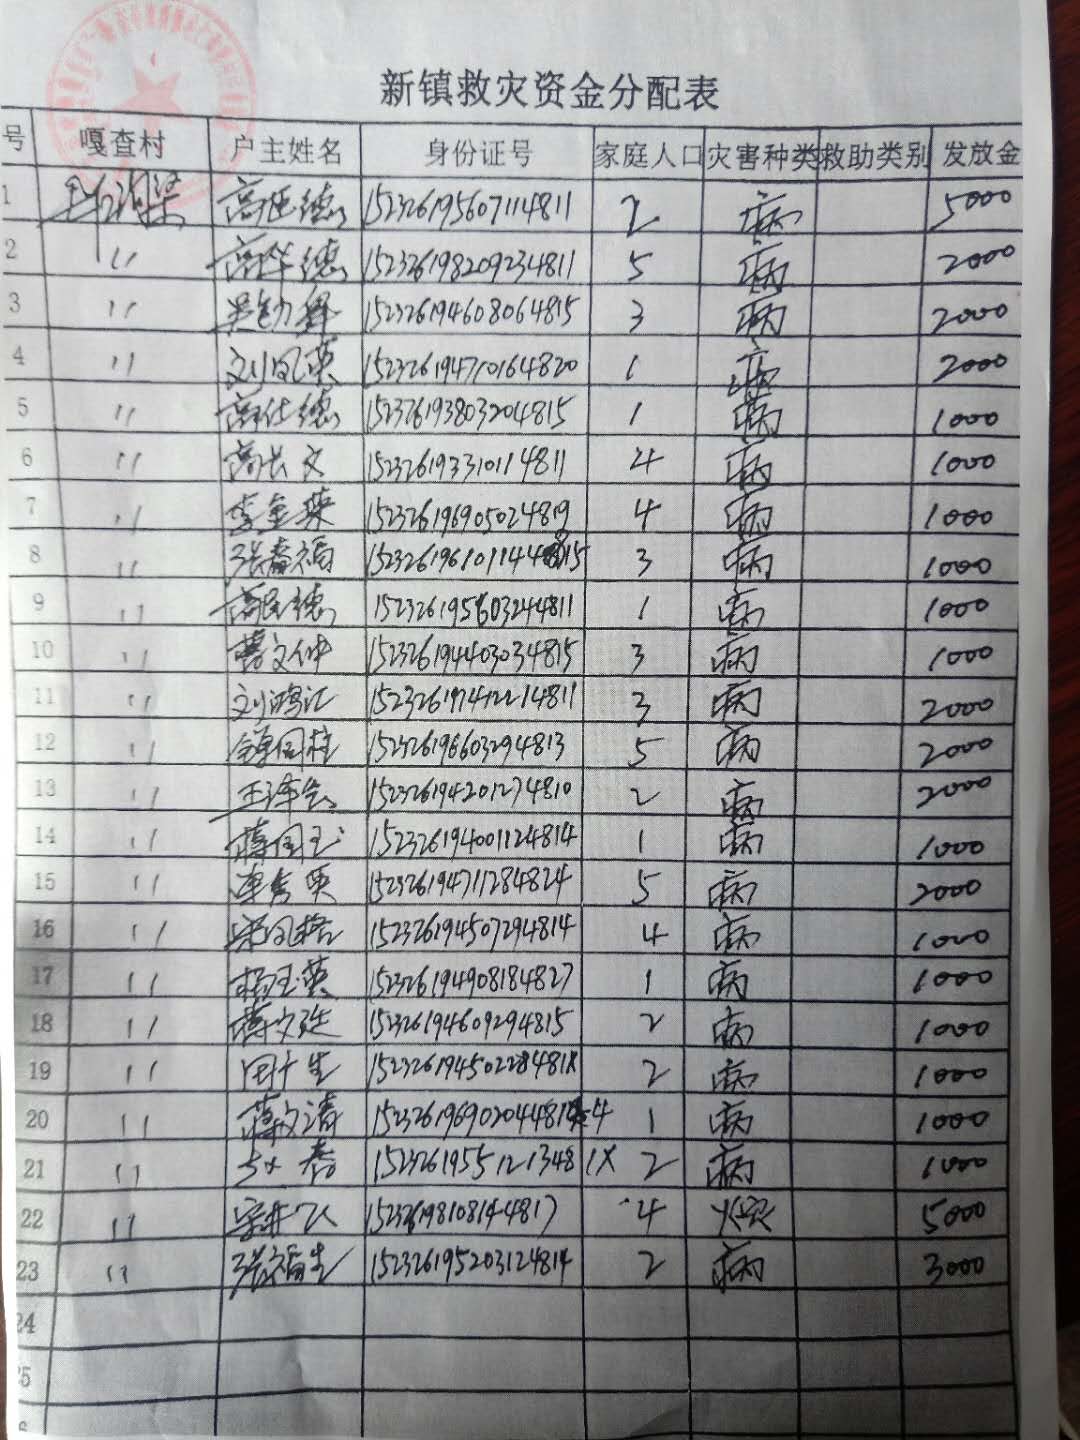 新镇救灾资金分配表
号 嘎查村 户主姓名 身份证号 家庭人口 灾害种类 救助类别 发放金
1 高延德 152326195607114811 2 病 5000
2 〃 高华德 152326198209234811 5 病 2000
3 〃 152326194608064815 3 病 2000
4 〃 刘凤英 152326194710164820 1 病 2000
5 〃 高仕德 152326193803204815 1 病 1000
6 〃 高长文 152326193310114811 4 病 1000
7 〃 李金 152326196905024819 4 病 1000
8 〃 张春福 3 病 1000
9 〃 高民德 152326195603244811 1 病 1000
10 〃 蒋文仲 152326194403034815 3 病 1000
11 〃 刘鸿江 3 病 2000
12 〃 国柱 152326196603294813 5 病 2000
13 〃 王泽 152326194201274810 2 病 2000
14 〃 蒋国玉 152326194001124814 1 病 1000
15 〃 李秀英 152326194711284824 5 病 2000
16 〃 152326194507294814 4 病 1000
17 〃 杨玉英 152326194908184827 1 病 1000
18 〃 蒋 152326194609294815 2 病 1000
19 〃 田 生 15232619450228481X 2 病 1000
20 〃 蒋文清 1 病 1000
21 〃 春 15232619551213481X 2 病 1000
22 〃 4 火灾 5000
23 〃 张福生 152326195203124814 2 病 3000
24
25